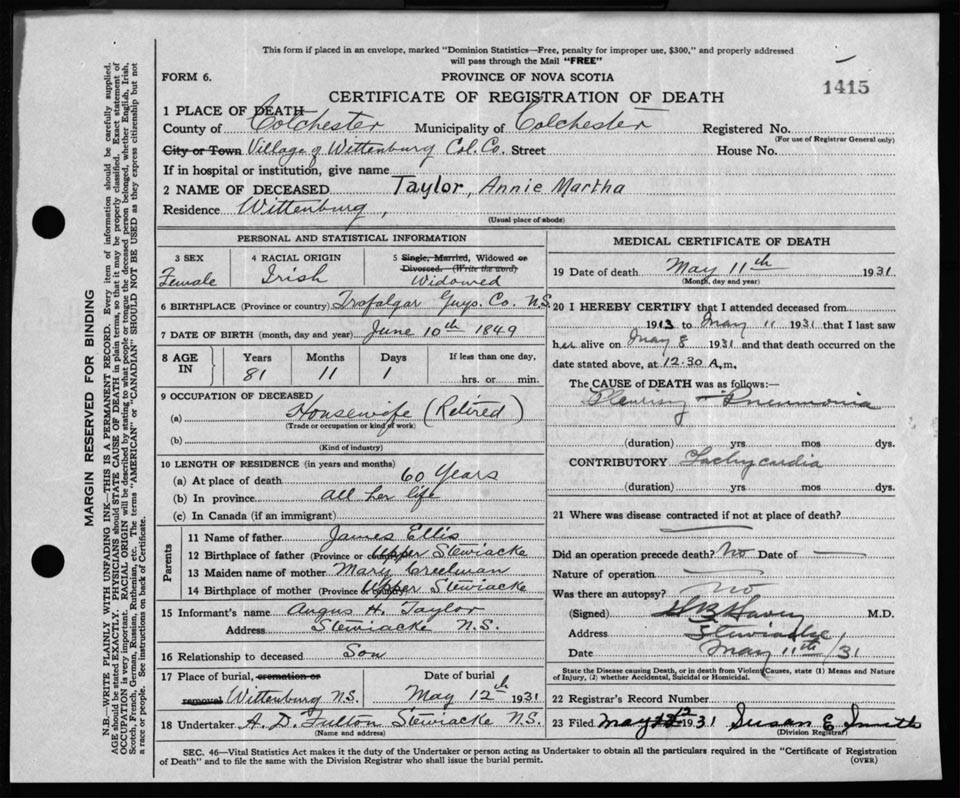 This form if placed in an envelope, marked "Dominion Statistics—Free, penalty for improper use, $300," and properly addressed
will pass through the Mail "FREE"
FORM 6.
PROVINCE OF NOVA SCOTIA
1415
CERTIFICATE OF REGISTRATION OF DEATH
1 PLACE OF DEATH
County of Colchester Municipality of Colchester Registered No.
(For use of Registrar General only)
City or Town Village of Wittenburg Col. Co. Street House No.
If in hospital or institution, give name
2 NAME OF DECEASED Taylor, Annie Martha
Residence Wittenburg,
(Usual place of abode)
PERSONAL AND STATISTICAL INFORMATION
3 SEX
Female
4 RACIAL ORIGIN
Irish
5 Single, Married, Widowed or
Divorced. (Write the word)
Widowed
6 BIRTHPLACE (Province or country) Trofalgar Guys. Co. N.S.
7 DATE OF BIRTH (month, day and year) June 10th 1849
8 AGE IN
Years Months Days If less than one day,
81 11 1 hrs. or min.
9 OCCUPATION OF DECEASED
(a) Housewife (Retired)
(Trade or occupation or kind of work)
(b)
(Kind of industry)
10 LENGTH OF RESIDENCE (in years and months)
(a) At place of death 60 Years
(b) In province all her life
(c) In Canada (if an immigrant)
Parents
11 Name of father James Ellis
12 Birthplace of father (Province or country) Upper Stewiacke
13 Maiden name of mother Mary Creelman
14 Birthplace of mother (Province or country) Upper Stewiacke
15 Informant's name Angus H. Taylor
Address Stewiacke N.S.
16 Relationship to deceased Son
17 Place of burial, cremation or Date of burial
removal Wittenburg N.S. May 12th 1931
18 Undertaker A. D. Fulton Stewiacke N.S.
(Name and address)
MEDICAL CERTIFICATE OF DEATH
19 Date of death May 11th 1931
(Month, day and year)
20 I HEREBY CERTIFY that I attended deceased from
1913 to May 11 1931 that I last saw
her alive on May 8 1931 and that death occurred on the
date stated above, at 12.30 A.m.
The CAUSE of DEATH was as follows:—
Pleurisy - Pneumonia
(duration) yrs mos dys.
CONTRIBUTORY Tachycardia
(duration) yrs mos dys.
21 Where was disease contracted if not at place of death?
Did an operation precede death? No Date of
Nature of operation
Was there an autopsy? No
(Signed) M.D.
Address Stewiacke
Date May 11th/31
State the Disease causing Death, or in death from Violent Causes, state (1) Means and Nature
of Injury, (2) whether Accidental, Suicidal or Homicidal.
22 Registrar's Record Number
23 Filed May 12 1931 Susan E Smith
(Division Registrar)
SEC. 46—Vital Statistics Act makes it the duty of the Undertaker or person acting as Undertaker to obtain all the particulars required in the "Certificate of Registration
of Death" and to file the same with the Division Registrar who shall issue the burial permit.
(OVER)
MARGIN RESERVED FOR BINDING
N.B.—WRITE PLAINLY WITH UNFADING INK—THIS IS A PERMANENT RECORD. Every item of information should be carefully supplied.
AGE should be stated EXACTLY. PHYSICIANS should STATE CAUSE OF DEATH in plain terms, so that it may be properly classified. Exact statement of
OCCUPATION is very important. RACIAL ORIGIN will be described by stating to what people or tongue the deceased person belonged, whether English, Irish,
Scotch, French, German, Russian, Ruthenian, etc. The terms "AMERICAN" or "CANADIAN" SHOULD NOT BE USED as they express citizenship but not
a race or people. See instructions on back of Certificate.